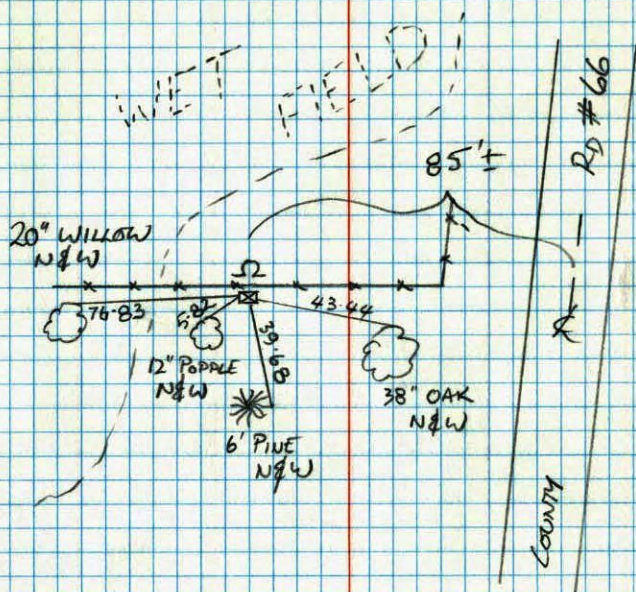 WET FIELD
85'±
RD #66
20" WILLOW
N&W
Ω
76.83
5.82
43.44
39.68
12" POPPLE
N&W
38" OAK
N&W
6' PINE
N&W
COUNTY